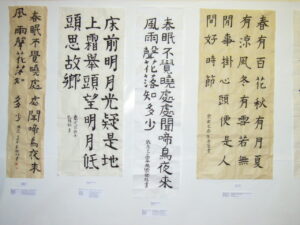 春眠不覺曉處處聞啼鳥夜來
風雨聲花落知多少
床前明月光疑是地
上霜舉頭望明月低
頭思故鄉
春眠不覺曉處處聞啼鳥夜來
風雨聲花落知多少
春有百花秋有月夏
有涼風冬有雪若無
閒事掛心頭便是人
間好時節